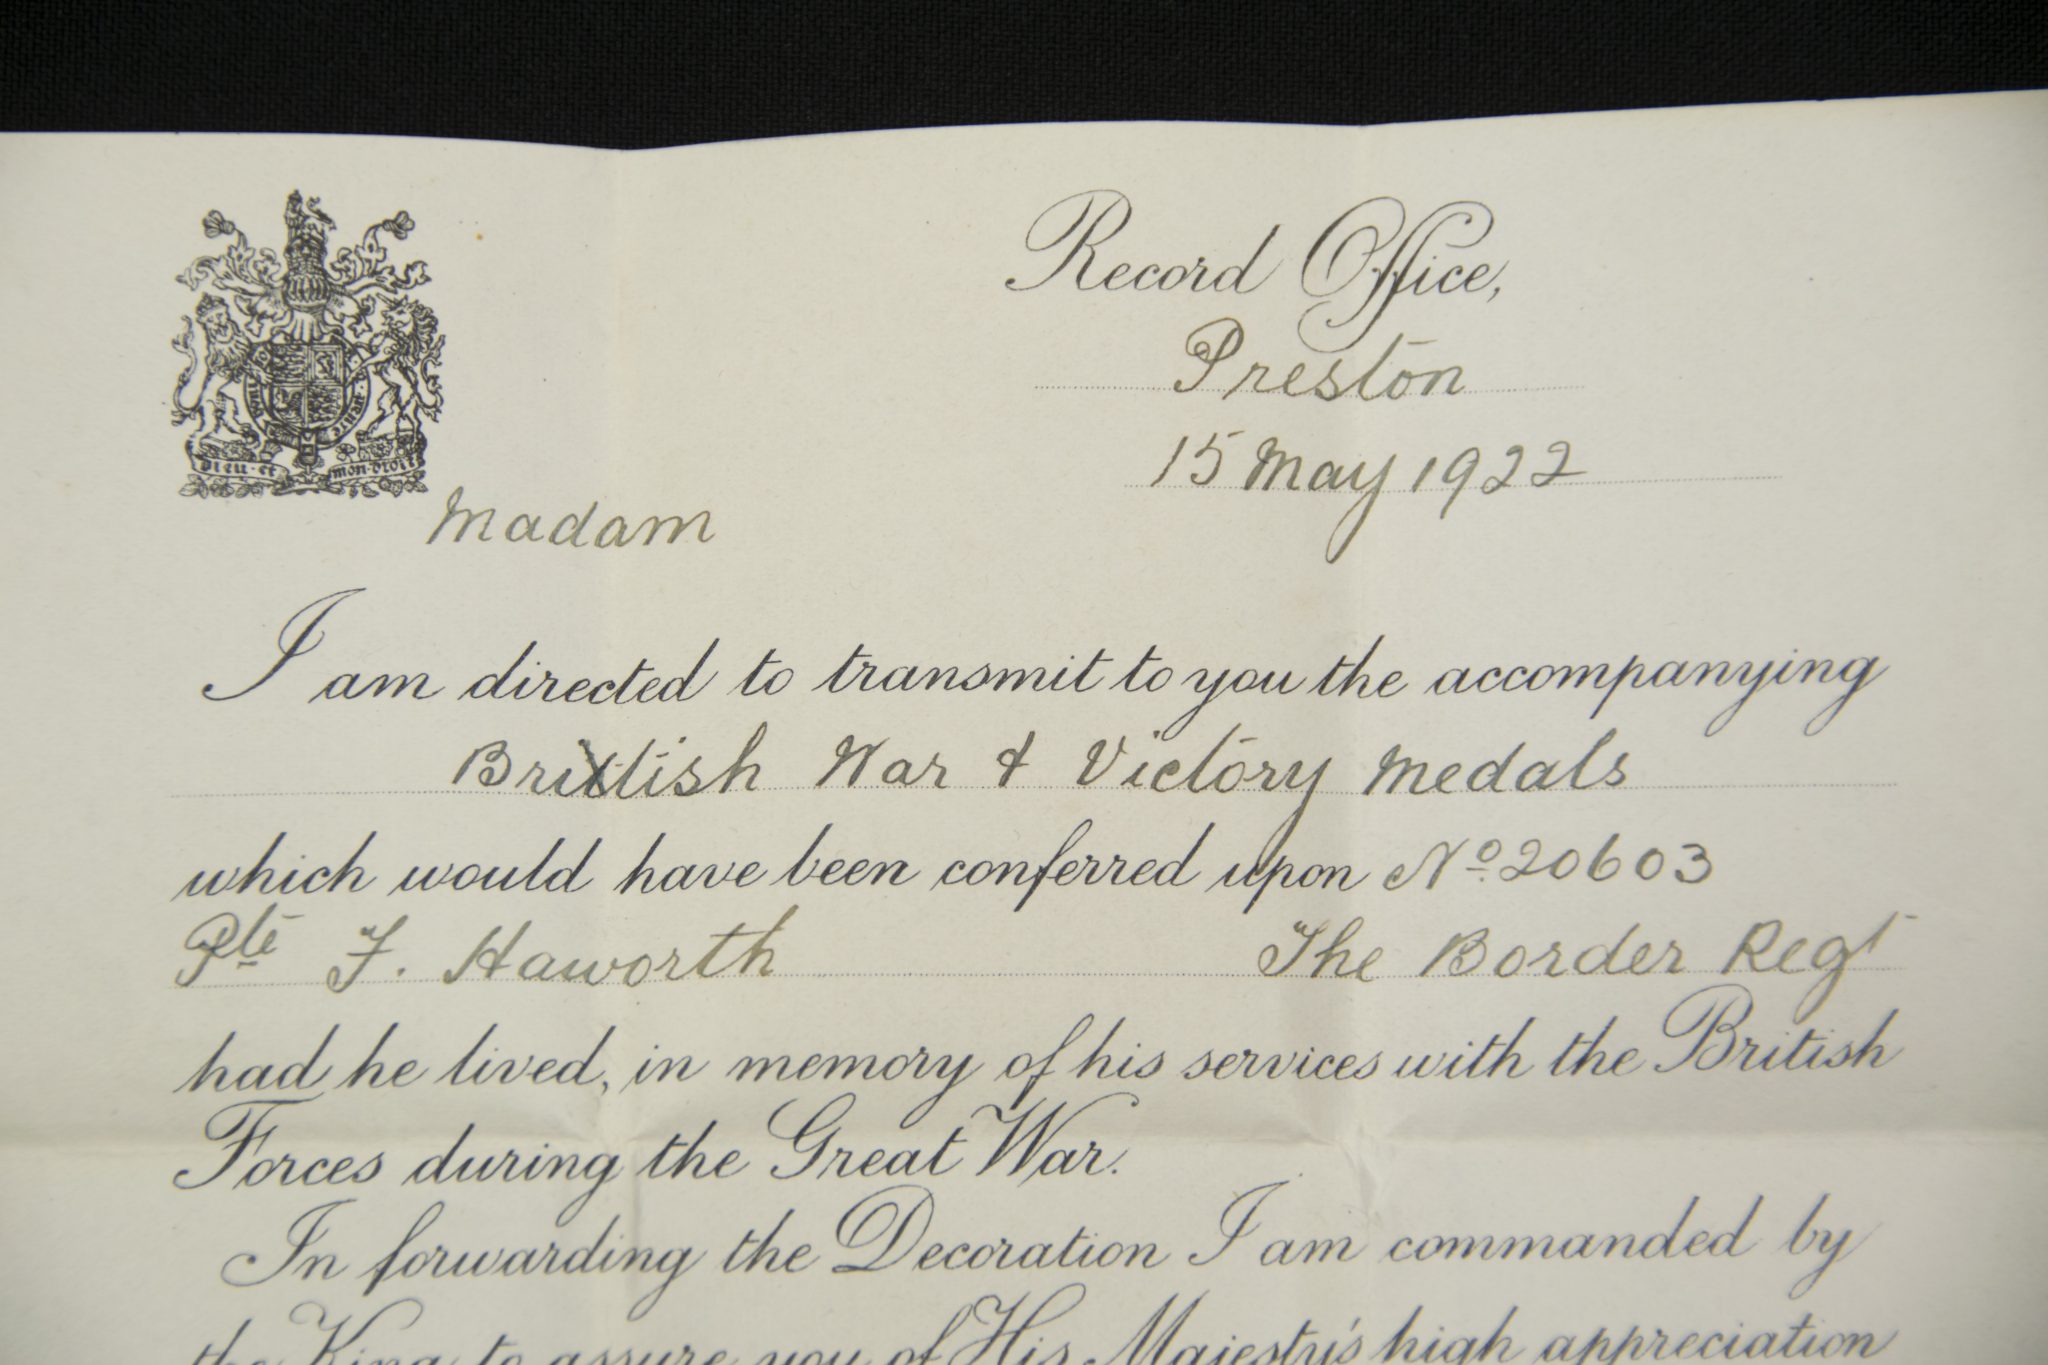 Record Office,
Preston
15 May 1922
DIEU·ET MON·DROIT
Madam
I am directed to transmit to you the accompanying
British War & Victory Medals
which would have been conferred upon Nº 20603
Pte F. Haworth The Border Regt
had he lived, in memory of his services with the British
Forces during the Great War.
In forwarding the Decoration I am commanded by
the King to assure you of His Majesty's high appreciation